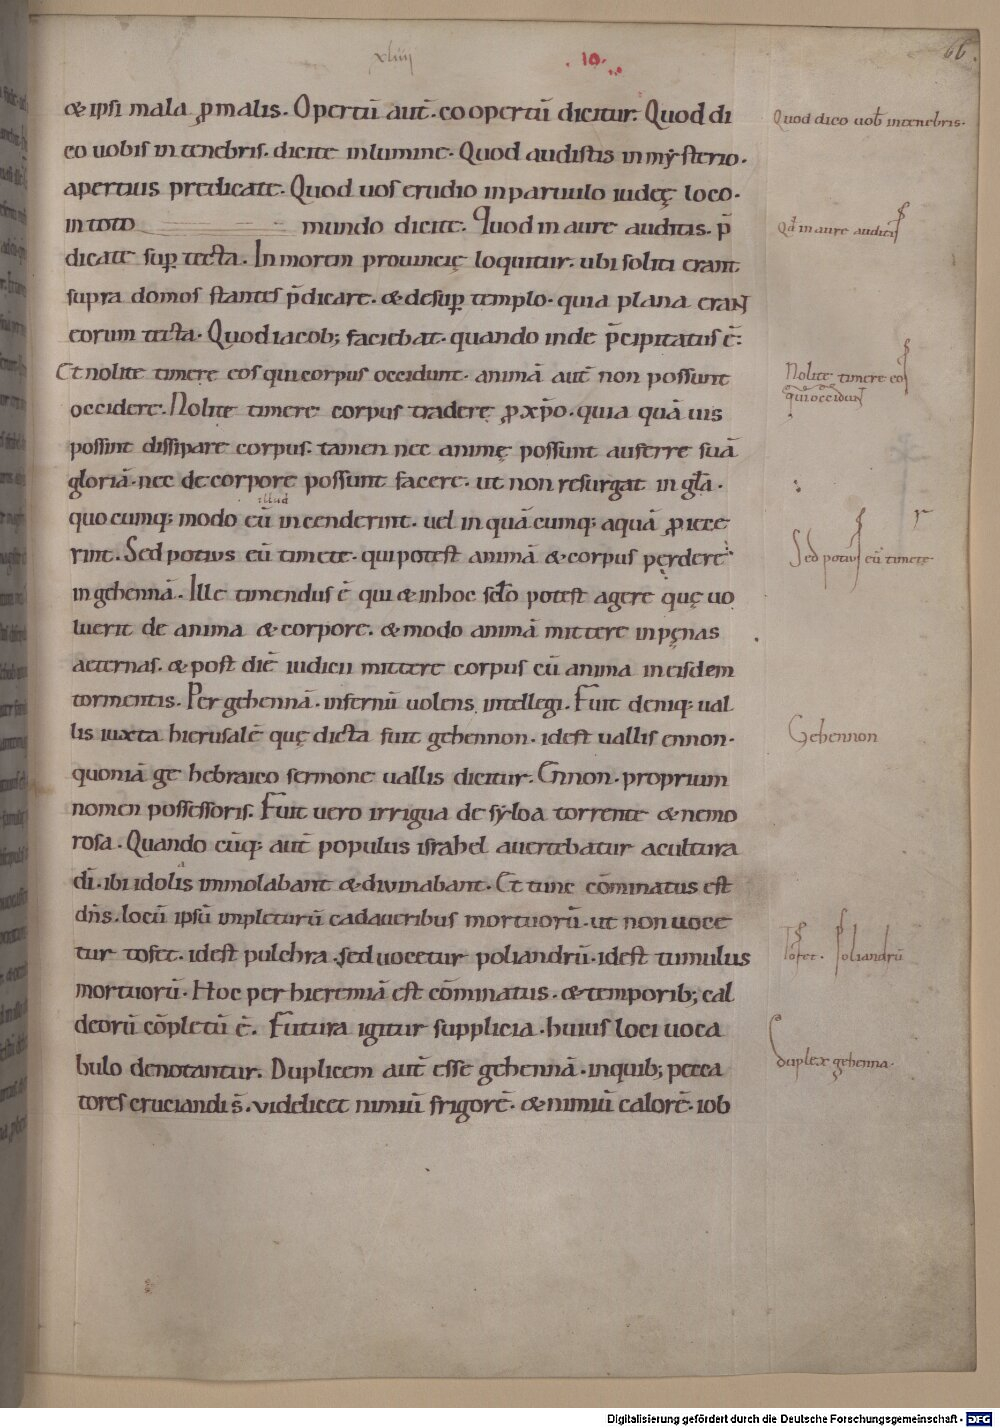 xliiij
.10.
66.
& ipsi mala ꝓ malis. Opertū aut̄. coopertū dicitur. Quod di
co uobis in tenebris. dicite in lumine. Quod audistis in mẏsterio.
apertius predicate. Quod uos erudio in paruulo iudeę loco.
in toto mundo dicite. Quod in aure auditis. p̄
dicate suꝑ tecta. In morem prouincię loquitur. ubi soliti erant
supra domos stantes p̄dicare. & desuꝑ templo. quia plana eraN
eorum tecta. Quod iacob; faciebat. quando inde p̄cipitatus ē.
Et nolite timere eos qui corpus occidunt. animā aut̄ non possunt
occidere. Nolite timere corpus tradere ꝓ xp̄o. quia quā uis
possint dissipare corpus. tamen nec animę possunt auferre suā
gloriā. nec de corpore possunt facere. ut non resurgat in gl̄a.
illud
quo cumq; modo eū incenderint. uel in quā cumq; aquā ꝓiece
rint. Sed potius eū timete. qui potest animā & corpus perdere
in gehennā. Ille timendus ē qui & in hoc sc̄lo potest agere quę uo
luerit de anima & corpore. & modo animā mittere in pęnas
aeternas. & post diē iudicii mittere corpus cū anima in eisdem
tormentis. Per gehennā. infernū uolens intellegi. Fuit deniq; ual
lis iuxta hierusalē quę dicta fuit gehennon. idest uallis ennon.
quoniā ge hebraico sermone uallis dicitur. Ennon. proprium
nomen possessoris. Fuit uero irrigua de sẏloa torrente & nemo
rosa. Quando cūq; aut̄ populus israhel auertebatur a cultura
dī. ibi idolis immolabant & diuinabant. Et tunc cōminatus est
dn̄s. locū ipsū impleturū cadaueribus mortuorū. ut non uoce
tur tofet. idest pulchra. sed uocetur poliandrū. idest tumulus
mortuorū. Hoc per hieremiā est cōminatus. & temporib; cal
deorū cōpletū ē. Futura igitur supplicia. huius loci uoca
bulo denotantur. Duplicem aut̄ esse gehennā. in quib; pecca
tores cruciandi s̄. videlicet nimiū frigorē. & nimiū calorē. iob
Quod dico uob̄ in tenebris.
Qd̄ in aure auditis
Nolite timere eos
qui occidunt
Sed potius eū timete
r
Gehennon
Tofet. poliandrū
duplex gehenna.
Digitalisierung gefördert durch die Deutsche Forschungsgemeinschaft - DFG